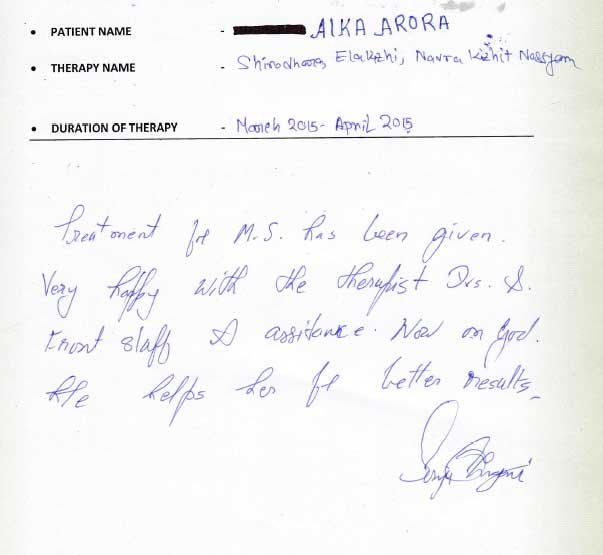 • PATIENT NAME - AlKA ARORA
• THERAPY NAME - Shirodhara, Elakizhi, Navra Kizhit Nasyam
• DURATION OF THERAPY - March 2015 - April 2015
Treatment for M.S. has been given.
Very happy with the therapist Drs. &
Front staff & assistance. Now on God.
He helps her for better results.